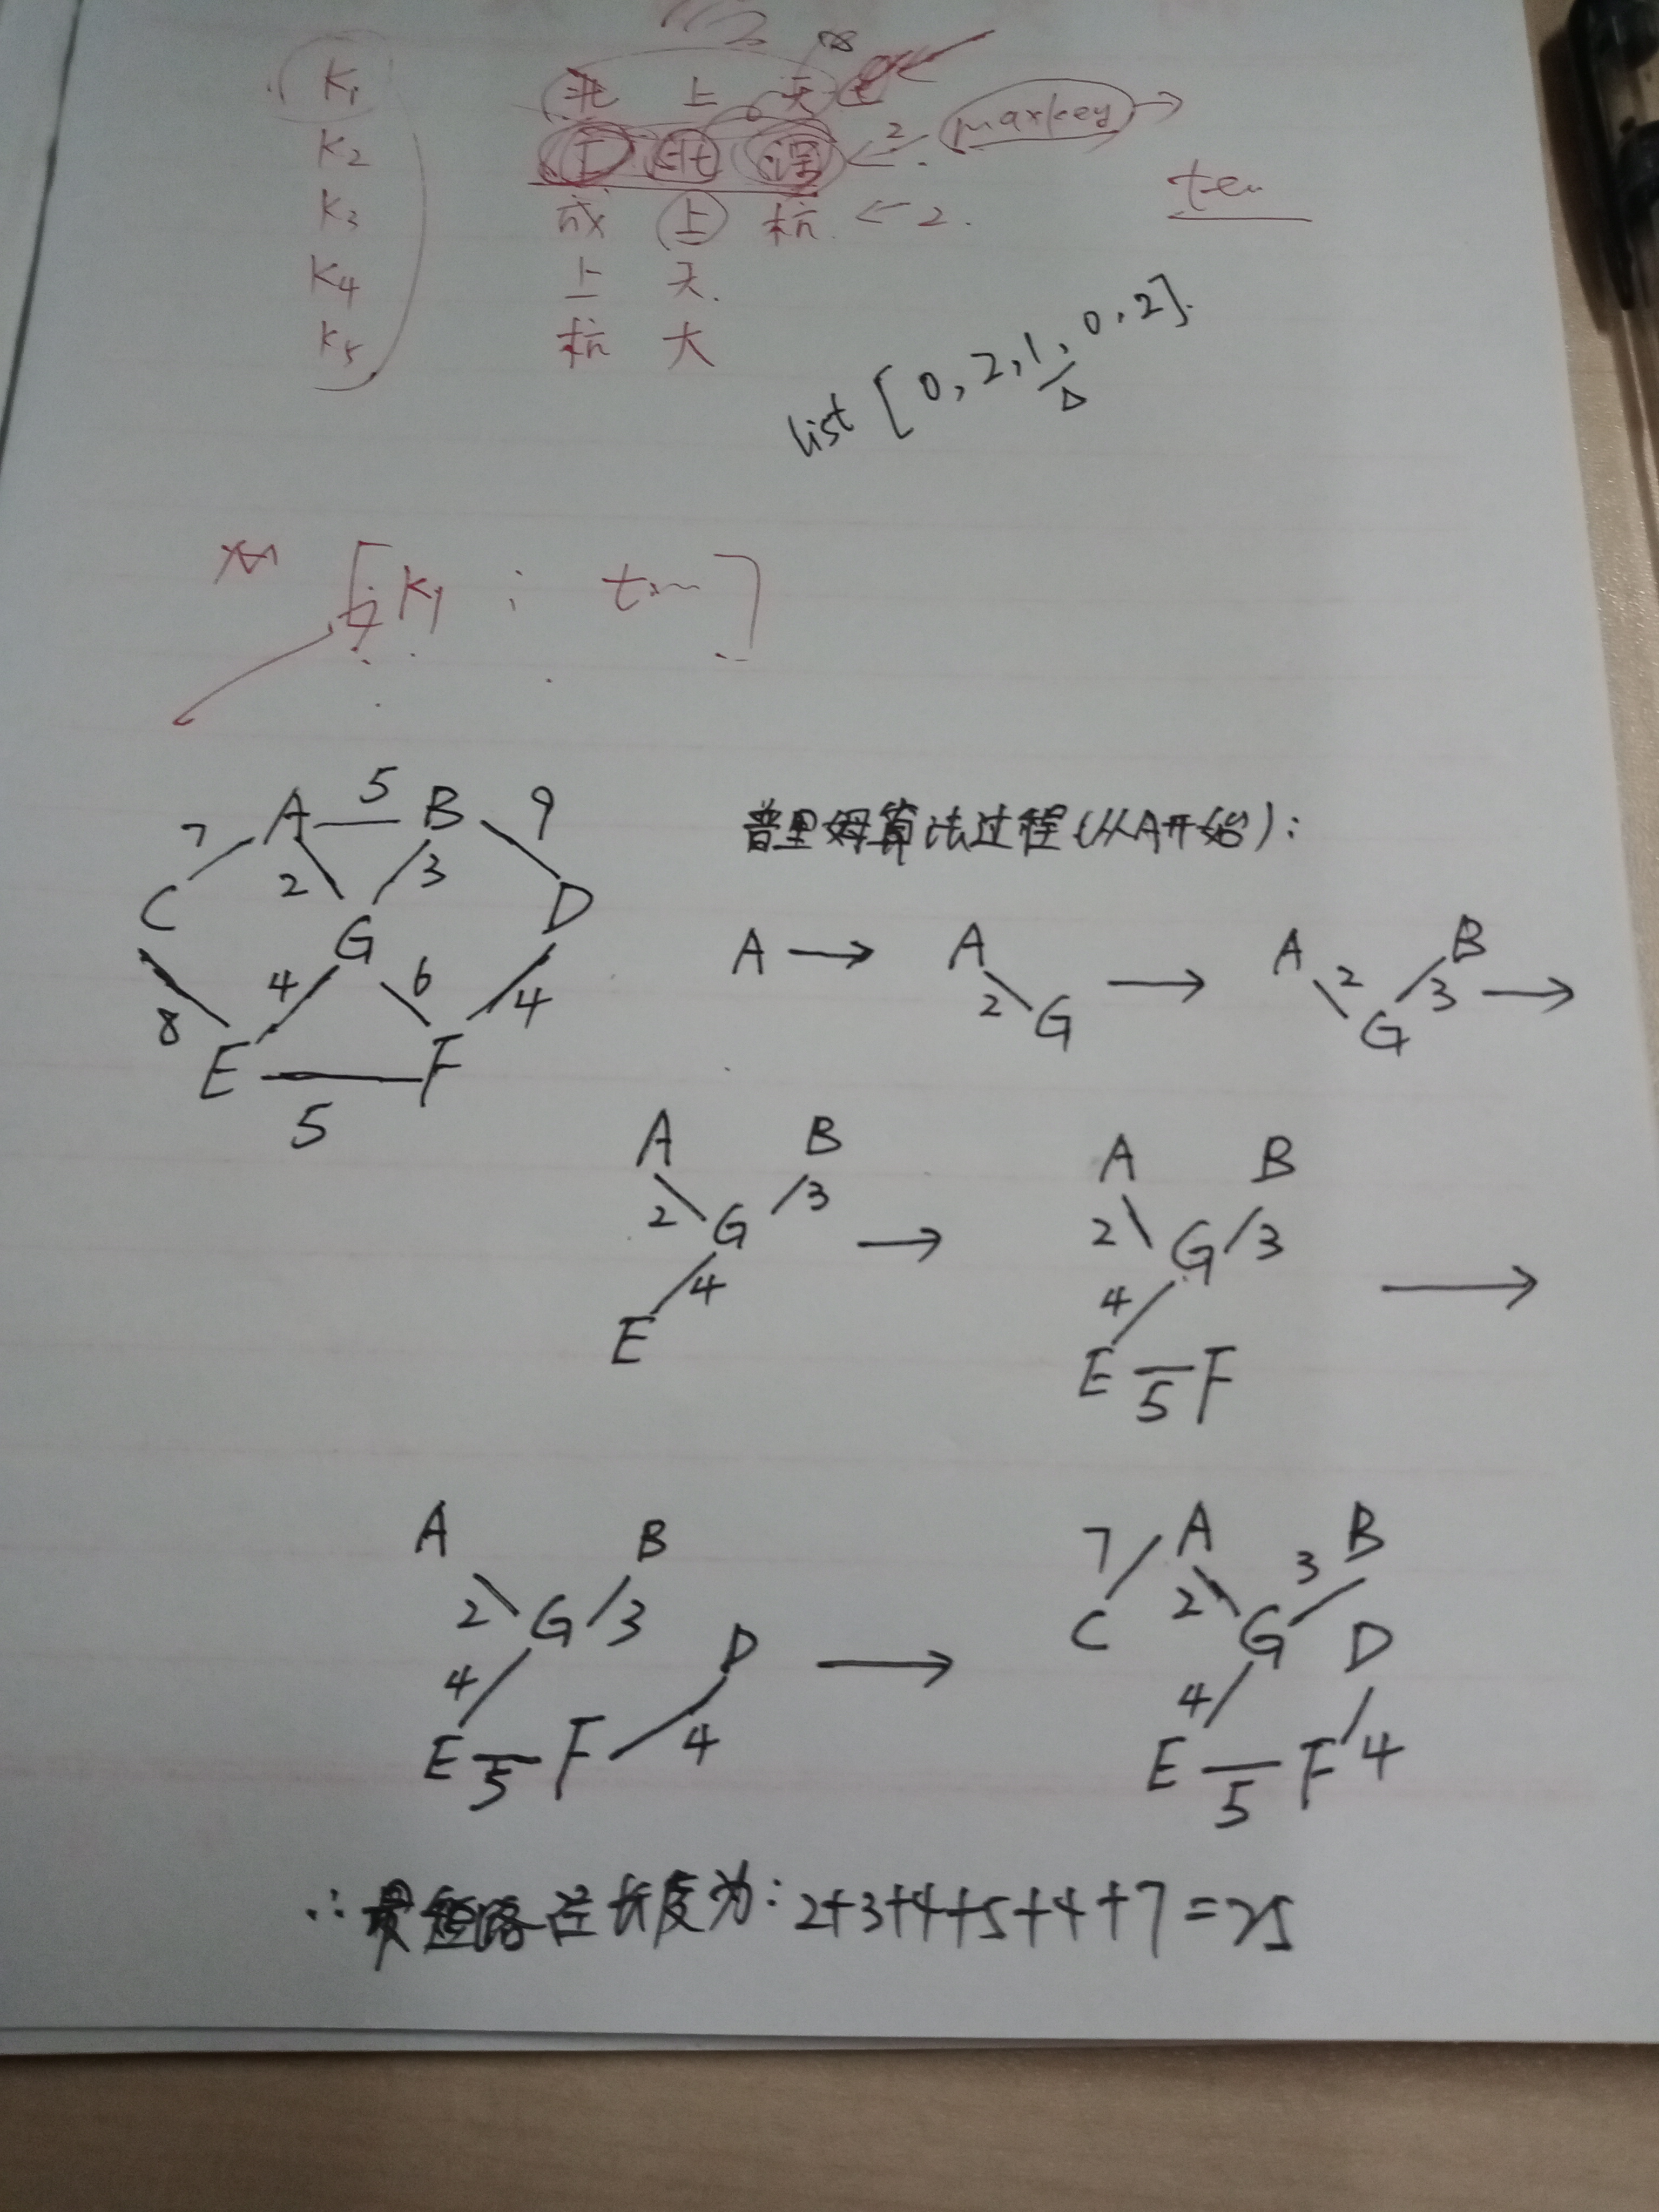 K1 北 上 天
K2 北 深 ← 2 maxkey →
K3 成 上 杭 ← 2.
K4 上 天.
K5 杭 大
list [0, 2, 1, 0, 2].
K1 :
A 5 B 9
7 2 3
C G D
4 6 4
8 E F
5
普里姆算法过程(从A开始):
A → A 2 G → A 2 G 3 B →
A B
2 G 3 →
4
E
A B
2 G 3 →
4
E 5 F
A B
2 G 3 D →
4
E 5 F 4
7 A 3 B
C 2 G D
4
E 5 F 4
∴最短路径长度为: 2+3+4+5+4+7=25